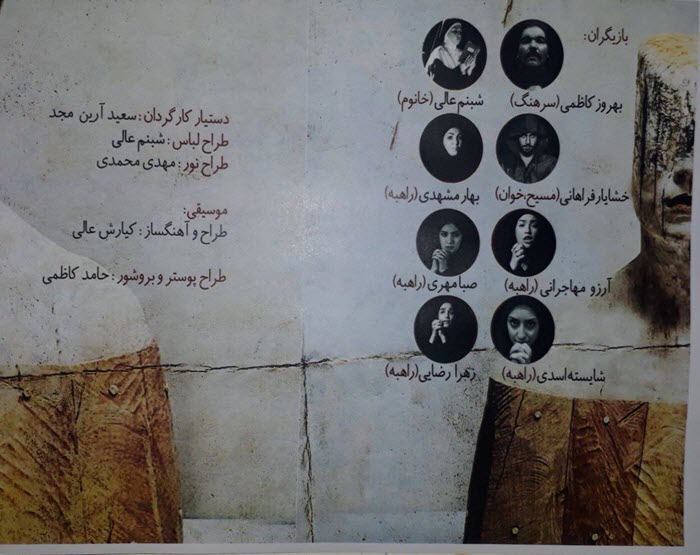 بازیگران:
بهروز کاظمی (سرهنگ)
شبنم عالی (خانوم)
خشایار فراهانی (مسیح، خوان)
بهار مشهدی (راهبه)
آرزو مهاجرانی (راهبه)
صبا مهری (راهبه)
شایسته اسدی (راهبه)
زهرا رضایی (راهبه)
دستیار کارگردان: سعید آرین مجد
طراح لباس: شبنم عالی
طراح نور: مهدی محمدی
موسیقی:
طراح و آهنگساز: کیارش عالی
طراح پوستر و بروشور: حامد کاظمی